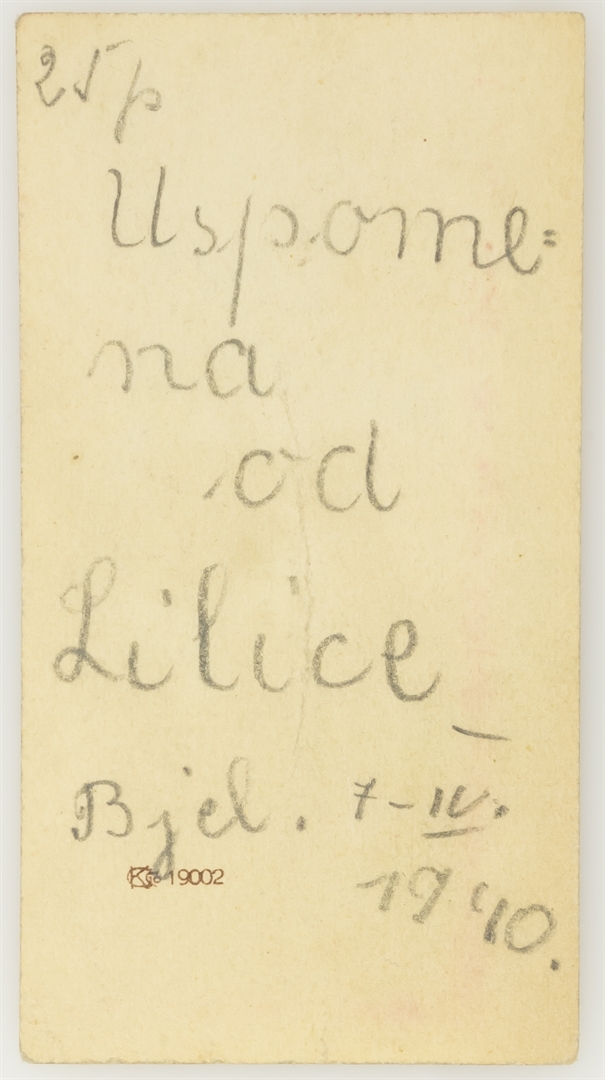 25 p
Uspome=
na
od
Lilice
Bjel. 7-IV.
19002
1940.